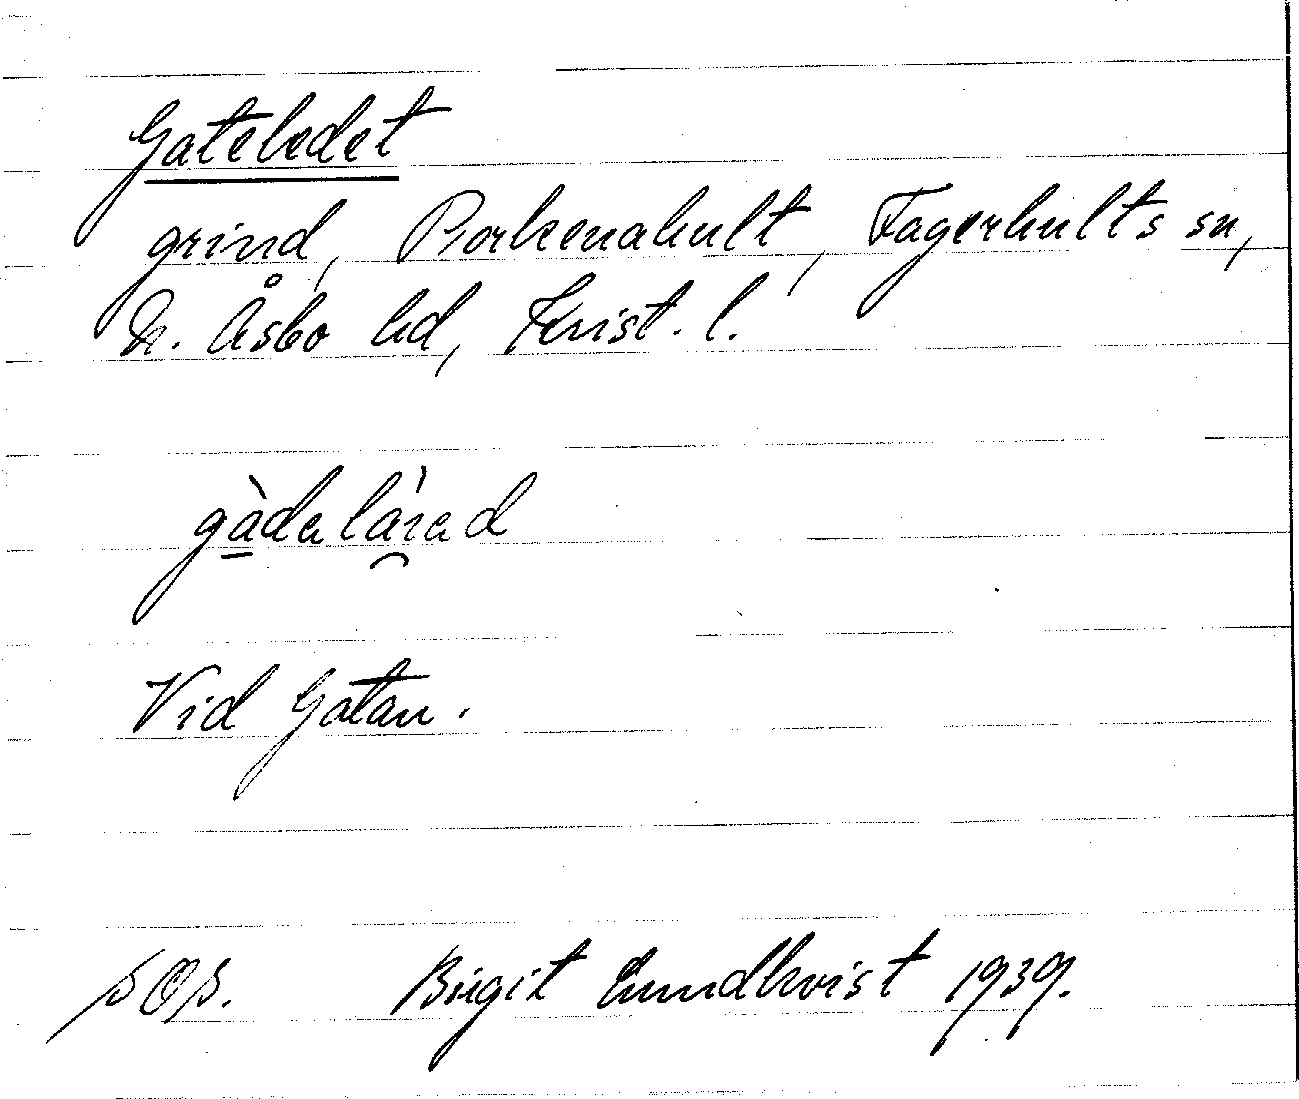 Gateledet
grind, Porkenahult, Fagerhults sn,
N. Åsbo hd, Krist. l.
gàdalàrad
Vid Gatan.
SOS. Birgit Lundkvist 1939.